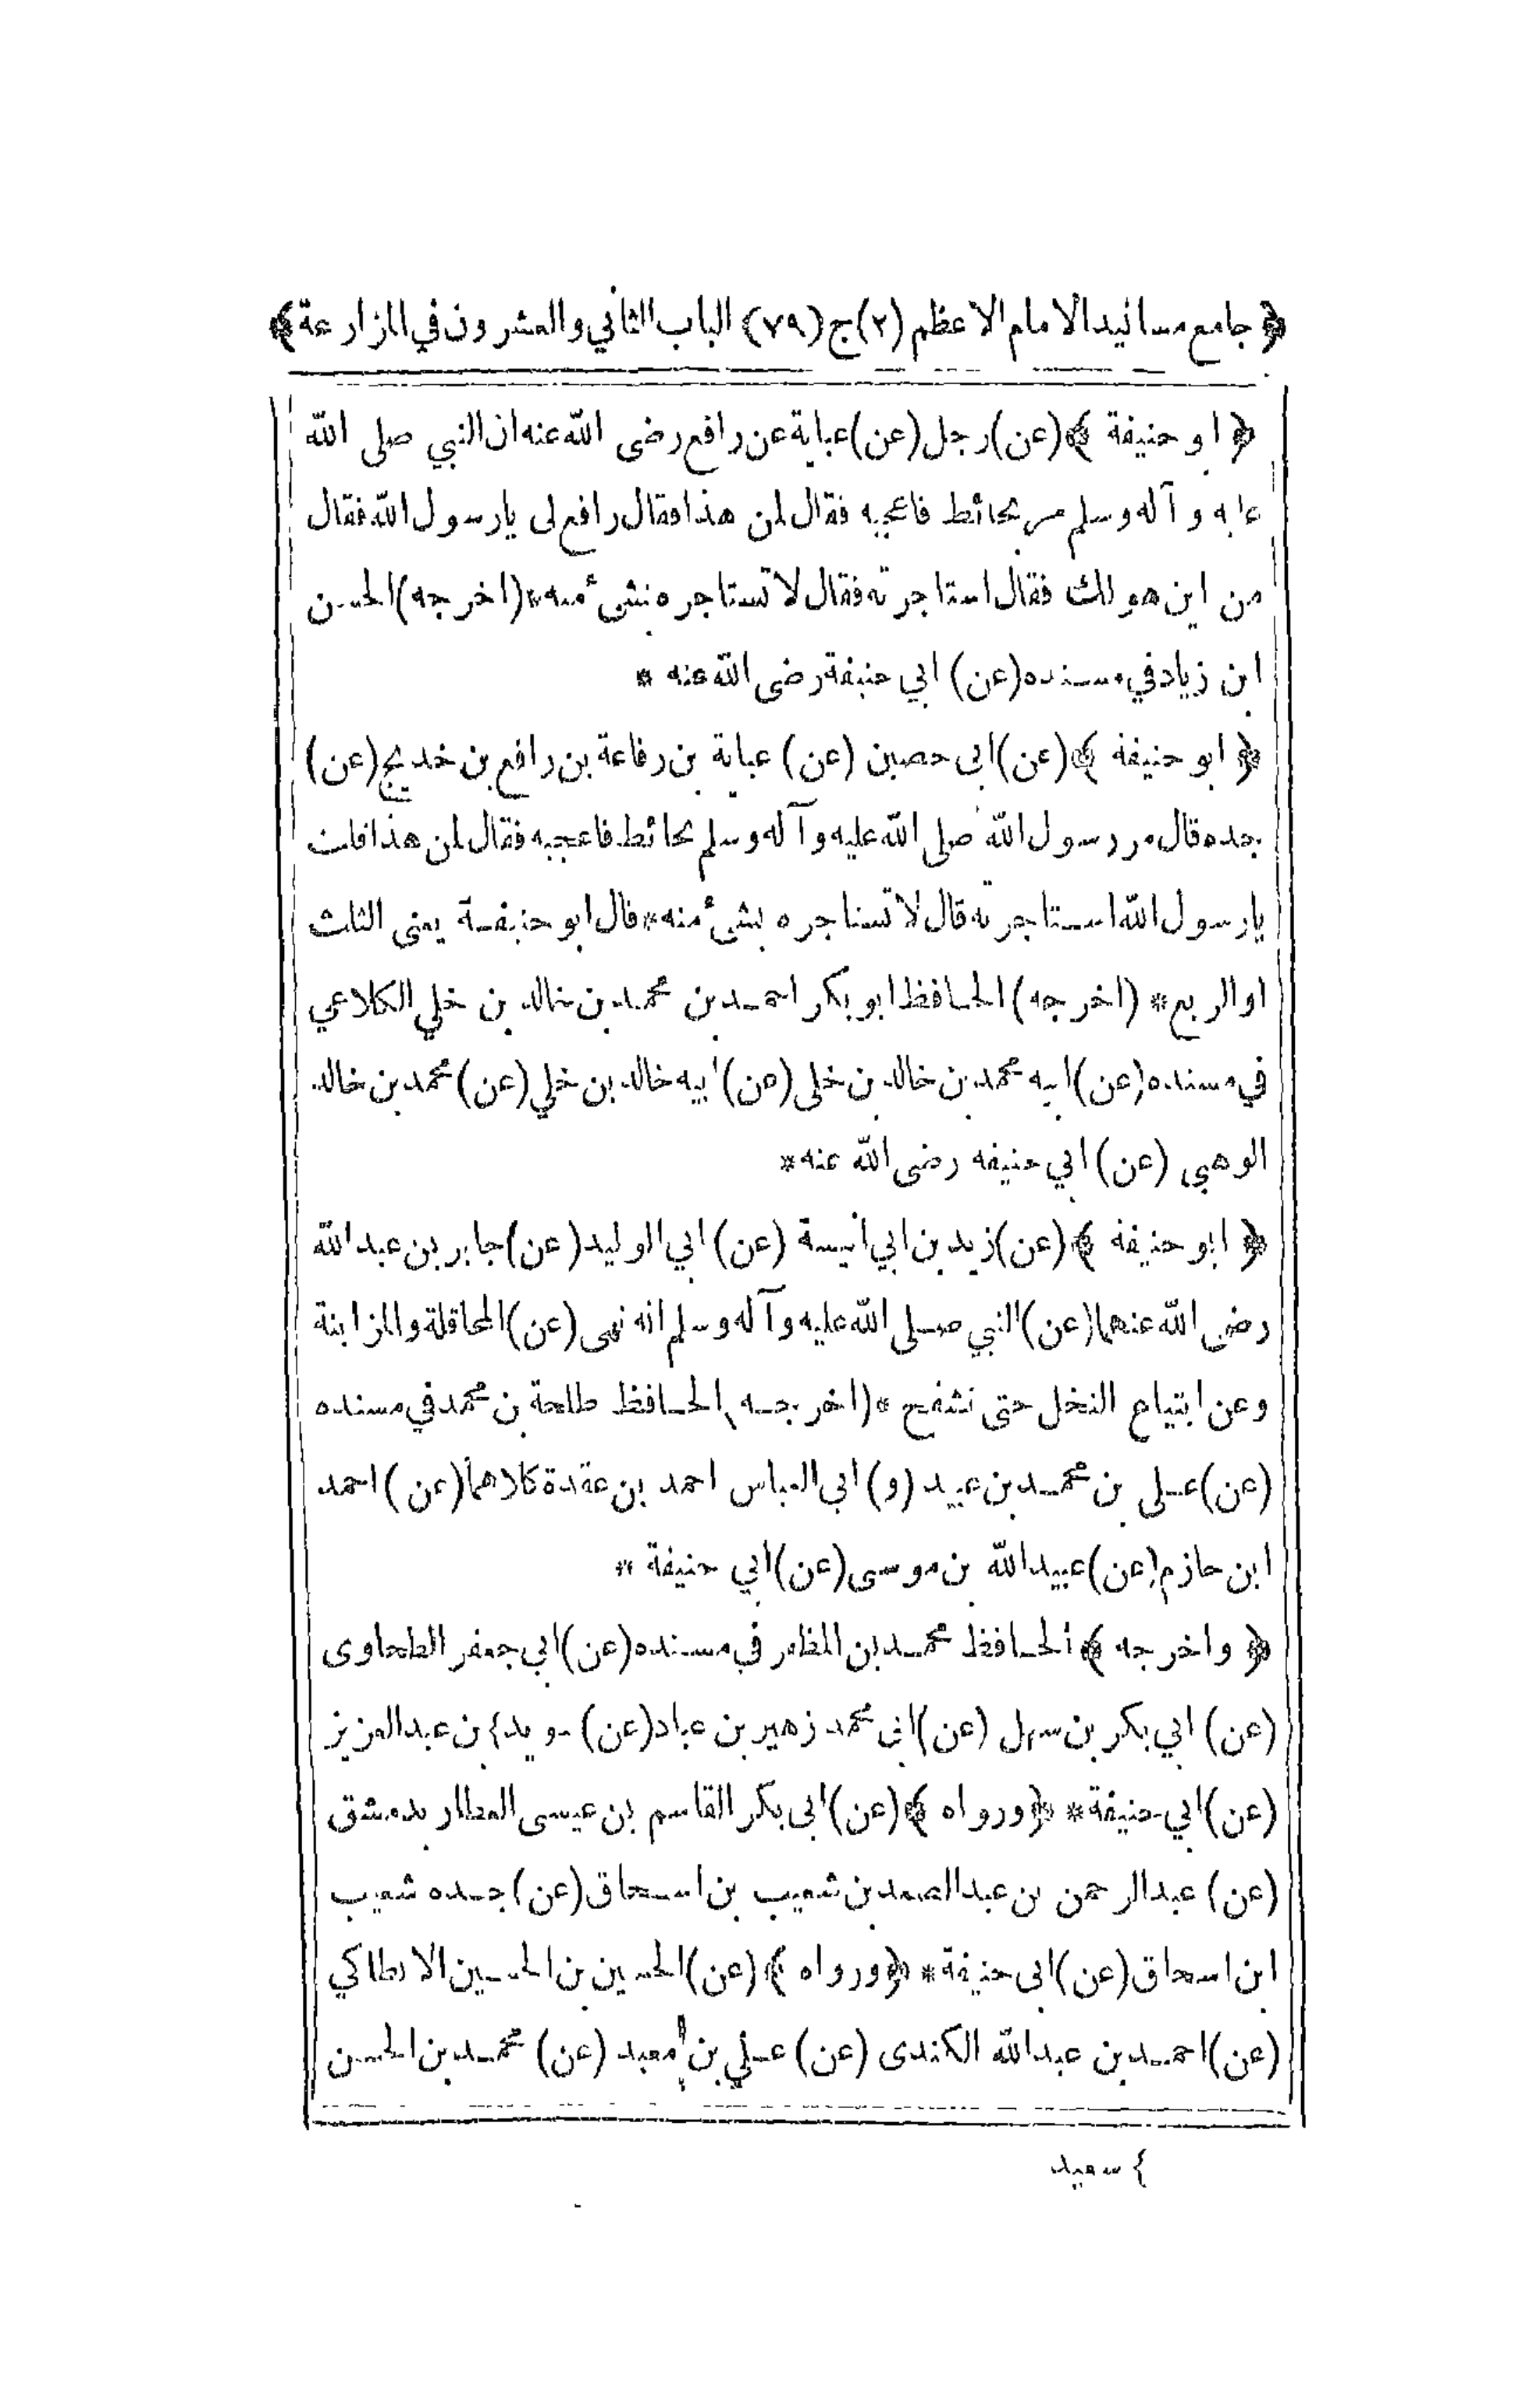 ﴿ جامع مسانيد الامام الاعظم (٢) ج (٧٩) الباب الثاني والعشرون في المزارعة ﴾
﴿ ابو حنيفة ﴾ (عن) رجل (عن) عباية عن رافع رضى الله عنه ان النبي صلى الله
عليه و آله وسلم مر بحائط فاعجبه فقال لمن هذا فقال رافع لى يا رسول الله فقال
من اين هو لك فقال استاجرته فقال لا تستاجره بشئ منه * (اخرجه) الحسن
ابن زياد في مسنده (عن) ابي حنيفة رضى الله عنه *
﴿ ابو حنيفة ﴾ (عن) ابى حصين (عن) عباية بن رفاعة بن رافع بن خديج (عن)
جده قال مر رسول الله صلى الله عليه وآله وسلم بحائط فاعجبه فقال لمن هذا فقلت
يا رسول الله استاجرته قال لا تستاجره بشئ منه * قال ابو حنيفة يعنى الثلث
او الربع * (اخرجه) الحافظ ابو بكر احمد بن محمد بن خالد بن خلي الكلاعي
في مسنده (عن) ابيه محمد بن خالد بن خلى (عن) ابيه خالد بن خلي (عن) محمد بن خالد
الوهبى (عن) ابي حنيفه رضى الله عنه *
﴿ ابو حنيفة ﴾ (عن) زيد بن ابي انيسة (عن) ابي الوليد (عن) جابر بن عبد الله
رضى الله عنهما (عن) النبي صلى الله عليه وآله وسلم انه نهى (عن) المحاقلة والمزابنة
وعن ابتياع النخل حتى تشقح * (اخرجه) الحافظ طلحة بن محمد في مسنده
(عن) على بن محمد بن عبيد (و) ابي العباس احمد بن عقدة كلاهما (عن) احمد
ابن حازم (عن) عبيد الله بن موسى (عن) ابي حنيفة *
﴿ واخرجه ﴾ الحافظ محمد بن المظفر في مسنده (عن) ابي جعفر الطحاوى
(عن) ابي بكر بن سهل (عن) ابى محمد زهير بن عباد (عن) سويد } بن عبد العزيز
(عن) ابي حنيفة * ﴿ ورواه ﴾ (عن) ابى بكر القاسم بن عيسى العطار بدمشق
(عن) عبد الرحمن بن عبد الصمد بن شعيب بن اسحاق (عن) جده شعيب
ابن اسحاق (عن) ابى حنيفة * ﴿ ورواه ﴾ (عن) الحسين بن الحسين الانطاكي
(عن) احمد بن عبد الله الكندى (عن) علي بن معبد (عن) محمد بن الحسن
} سعيد